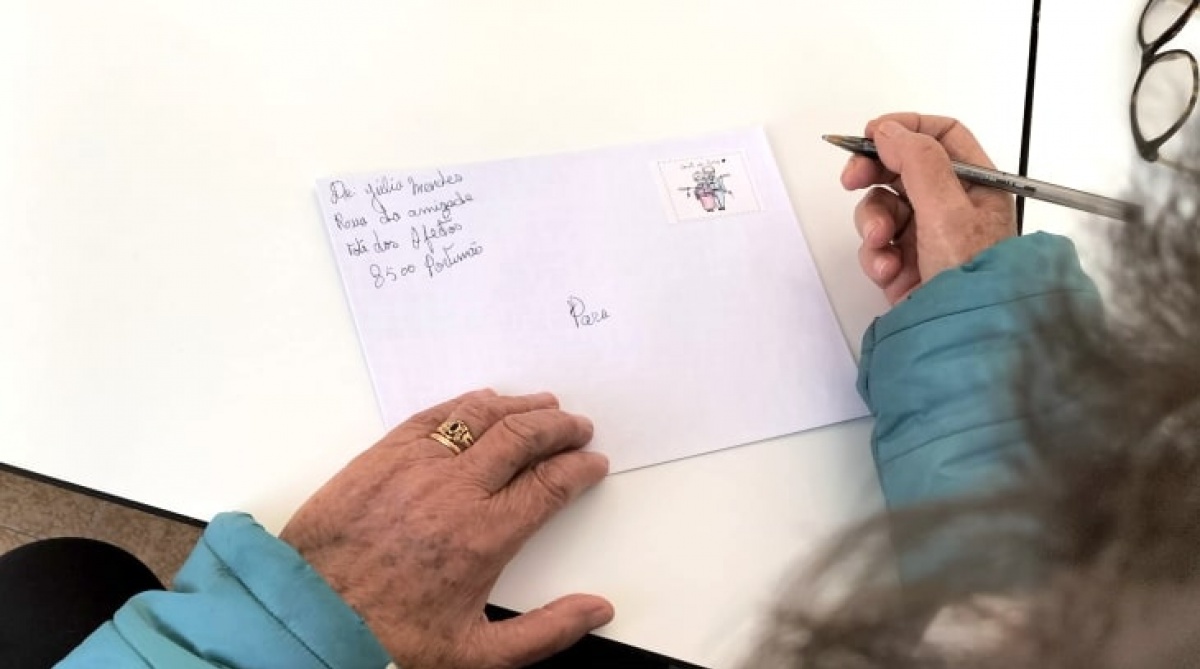 De Júlia Mendes
Rua da amizade
Lote dos Afetos
8500 Portimão
Para